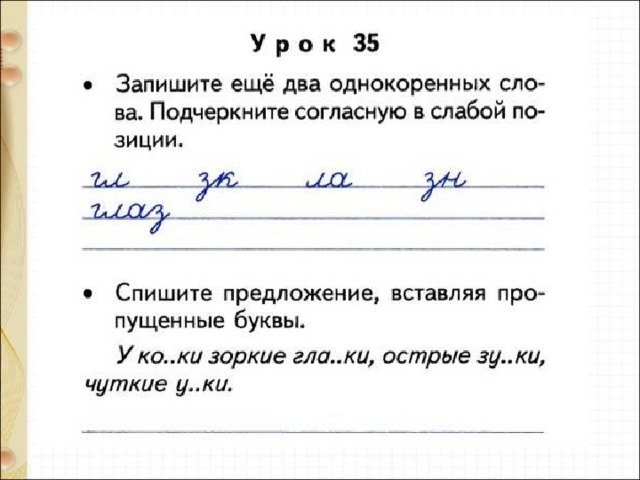 Урок 35
• Запишите ещё два однокоренных сло-
ва. Подчеркните согласную в слабой по-
зиции.
гл зк ла зн
глаз
• Спишите предложение, вставляя про-
пущенные буквы.
У ко..ки зоркие гла..ки, острые зу..ки,
чуткие у..ки.